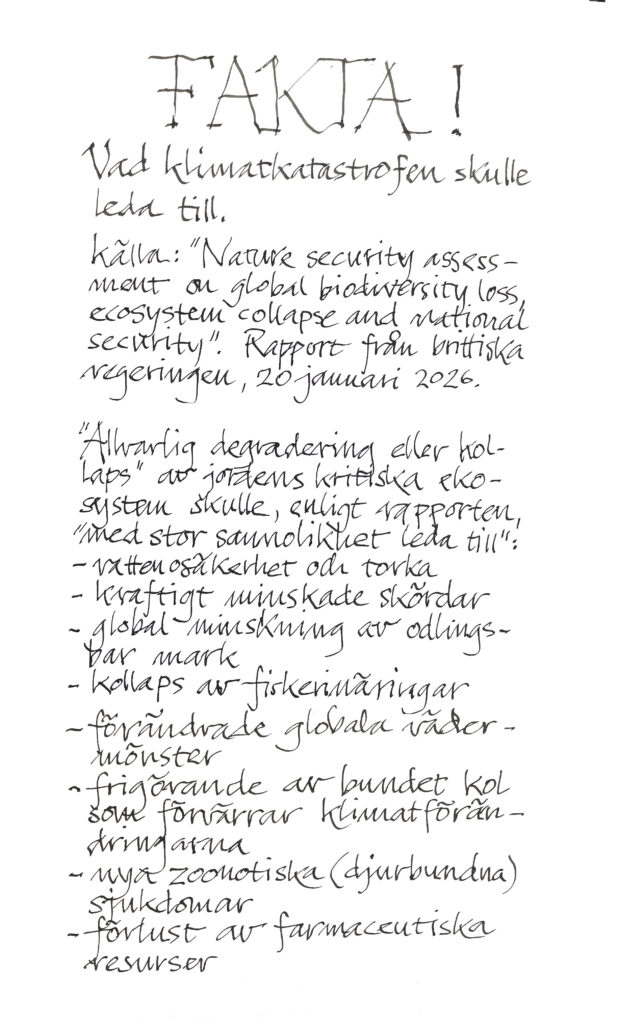 FAKTA!
Vad klimatkatastrofen skulle
leda till.
Källa: "Nature security assess-
ment on global biodiversity loss,
ecosystem collapse and national
security". Rapport från brittiska
regeringen, 20 januari 2026.
"Allvarlig degradering eller kol-
laps" av jordens kritiska eko-
system skulle, enligt rapporten,
"med stor sannolikhet leda till":
- vattenosäkerhet och torka
- kraftigt minskade skördar
- global minskning av odlings-
bar mark
- kollaps av fiskerinäringar
- förändrade globala väder-
mönster
- frigörande av bundet kol
som förvärrar klimatförän-
dringarna
- nya zoonotiska (djurbundna)
sjukdomar
- förlust av farmaceutiska
resurser